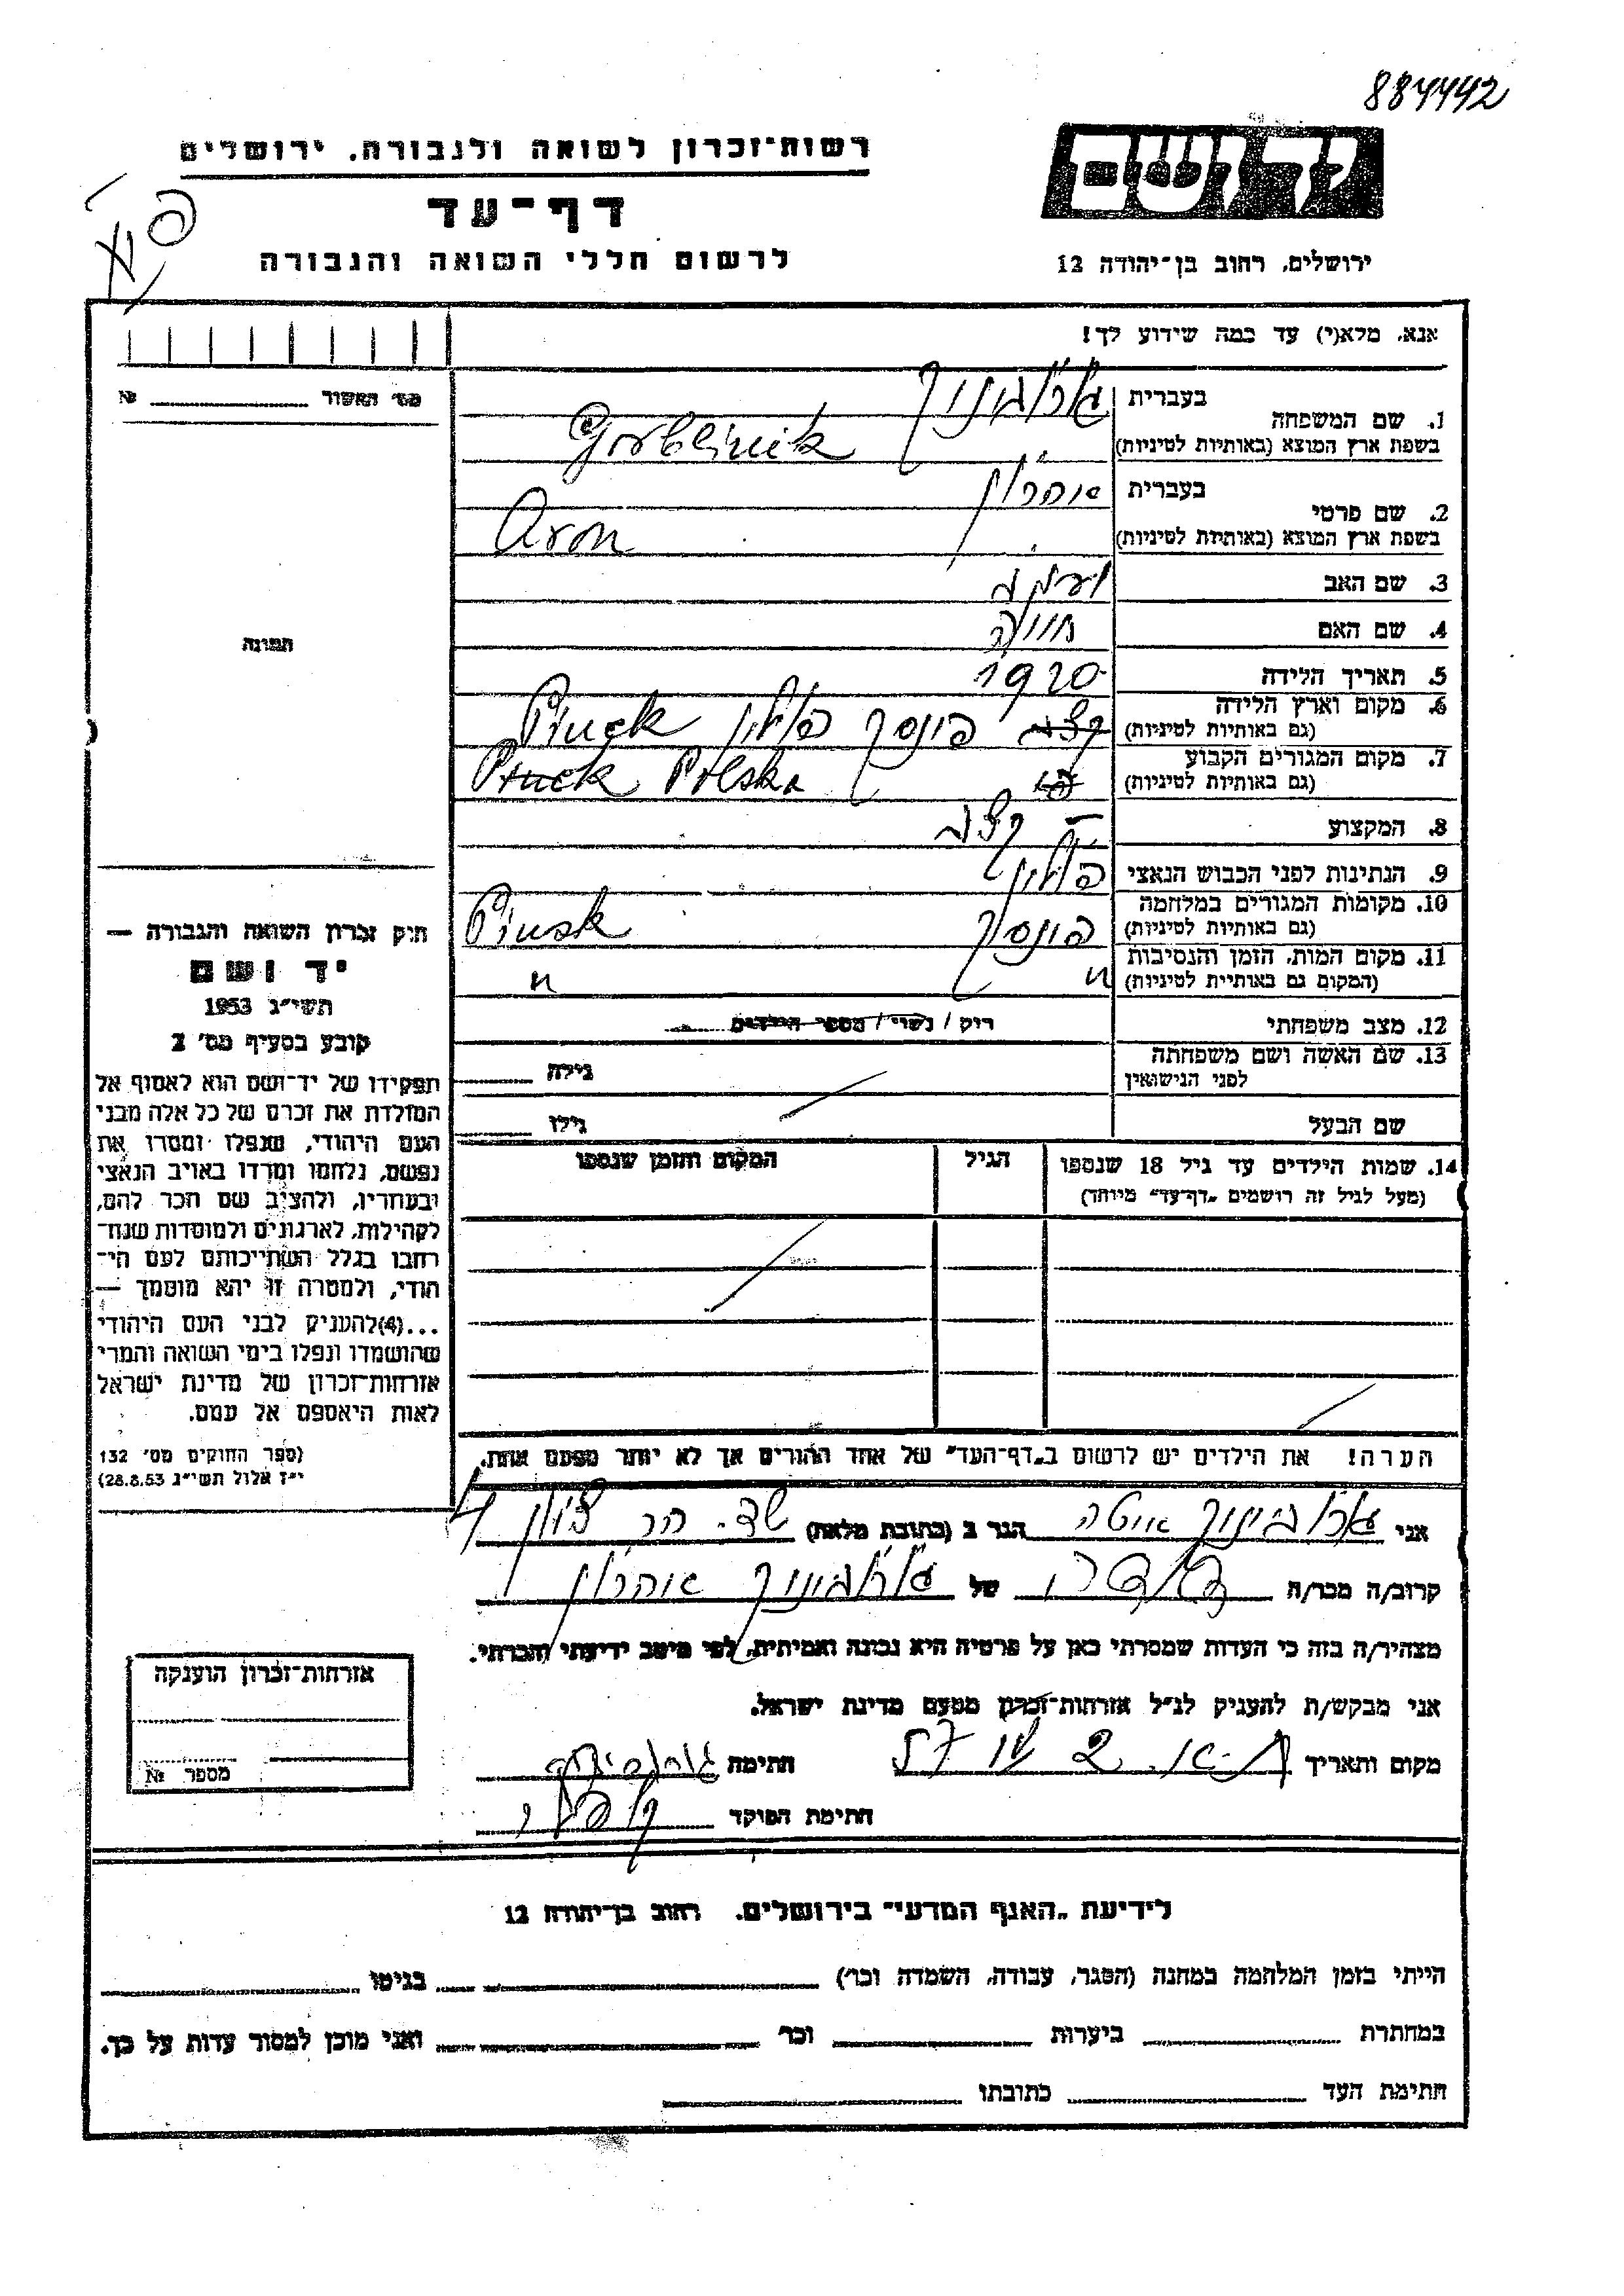 884442
רשות־זכרון לשואה ולגבורה, ירושלים
דף־עד
לרשום חללי השואה והגבורה
יד ושם
ירושלים, רחוב בן־יהודה 12
אנא, מלא(י) עד כמה שידוע לך!
מס׳ האשור № 
תמונה
1. שם המשפחה בעברית
בשפת ארץ המוצא (באותיות לטיניות) Gorbinik
2. שם פרטי בעברית אהרון
בשפת ארץ המוצא (באותיות לטיניות) Aron
3. שם האב יעקב
4. שם האם חייה
5. תאריך הלידה 1920
6. מקום וארץ הלידה
(גם באותיות לטיניות) קצב פינסק פולין Pinsk
7. מקום המגורים הקבוע
(גם באותיות לטיניות) Pinsk Polska
8. המקצוע קצב
9. הנתינות לפני הכבוש הנאצי פולין
10. מקומות המגורים במלחמה
(גם באותיות לטיניות) פינסק Pinsk
11. מקום המות, הזמן והנסיבות
(המקום גם באותיות לטיניות) " "
12. מצב משפחתי רוק / נשוי / מספר הילדים
13. שם האשה ושם משפחתה
לפני הנישואין גילה
שם הבעל גילו
14. שמות הילדים עד גיל 18 שנספו
(מעל לגיל זה רושמים „דף־עד״ מיוחד)
הגיל
המקום והזמן שנספו
הערה! את הילדים יש לרשום ב„דף־העד״ של אחד ההורים אך לא יותר מפעם אחת.
חוק זכרון השואה והגבורה —
יד ושם
תשי״ג 1953
קובע בסעיף מס׳ 2
תפקידו של יד־ושם הוא לאסוף אל
המולדת את זכרם של כל אלה מבני
העם היהודי, שנפלו ומסרו את
נפשם, נלחמו ומרדו באויב הנאצי
ובעוזריו, ולהציב שם וזכר להם,
לקהילות, לארגונים ולמוסדות שנח־
רבו בגלל השתייכותם לעם הי־
הודי, ולמטרה זו יהא מוסמך —
...(4)להעניק לבני העם היהודי
שהושמדו ונפלו בימי השואה והמרי
אזרחות־זכרון של מדינת ישראל
לאות היאספם אל עמם.
(ספר החוקים מס׳ 132
י״ז אלול תשי״ג 28.8.53)
אני איטה הגר ב (כתובת מלאה) שד. הר ציון 4
קרוב/ה מכר/ה של אהרון
מצהיר/ה בזה כי העדות שמסרתי כאן על פרטיה היא נכונה ואמיתית, לפי מיטב ידיעתי והכרתי.
אני מבקש/ת להעניק לנ״ל אזרחות־זכרון מטעם מדינת ישראל.
מקום ותאריך ת-א. חתימה
חתימת הפוקד
אזרחות־זכרון הוענקה
מספר №
לידיעת „האגף המדעי״ בירושלים, רחוב בן־יהודה 12
הייתי בזמן המלחמה במחנה (הסגר, עבודה, השמדה וכו׳) בגיטו
במחתרת ביערות וכו׳ ואני מוכן למסור עדות על כך.
חתימת העד כתובתו